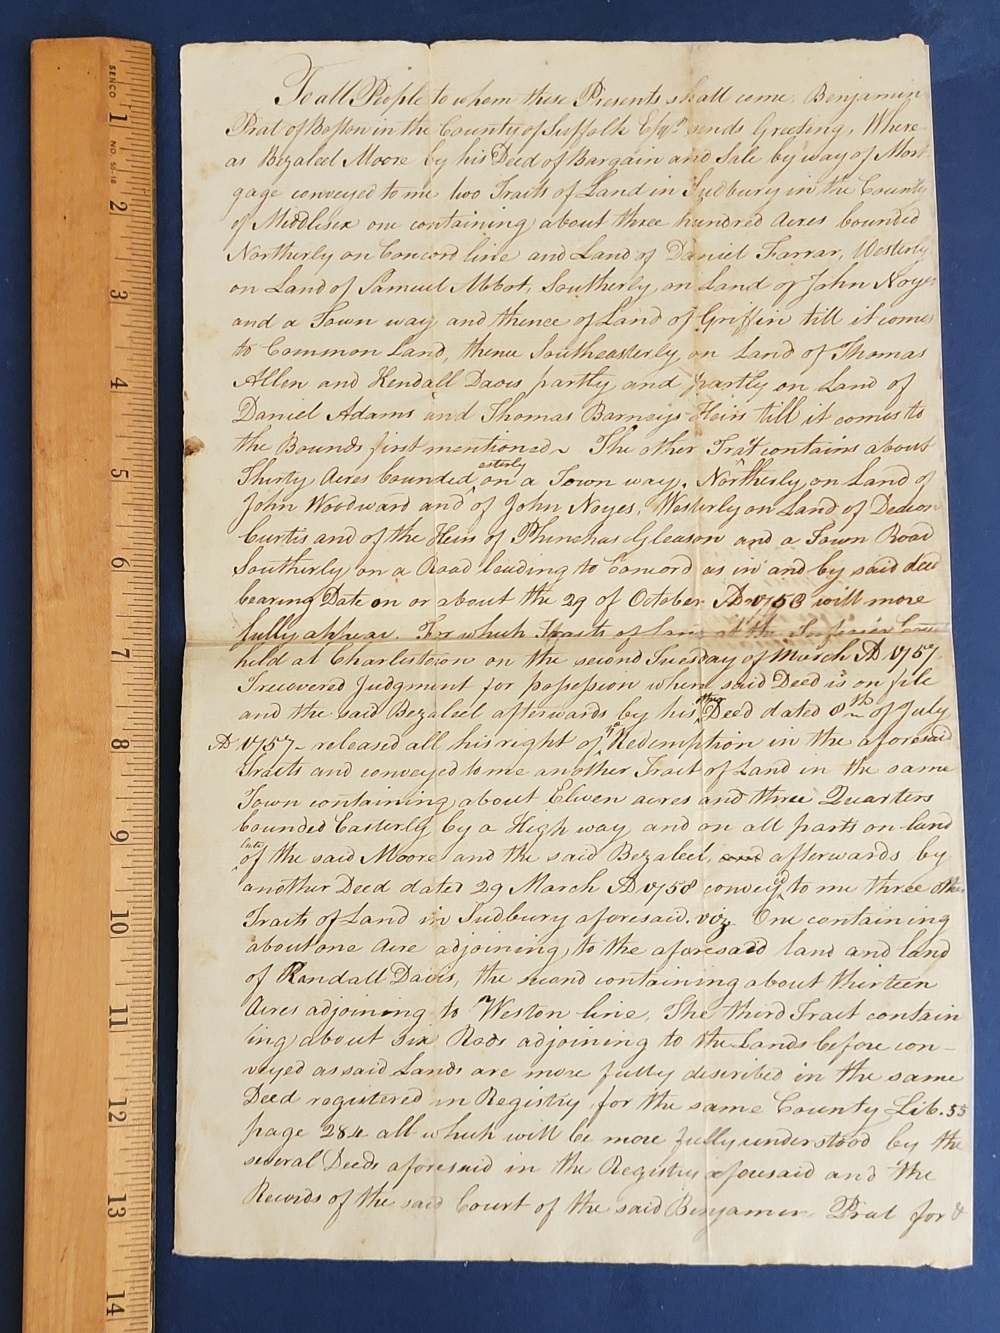 To all People to whom these Presents shall come, Benjamin
Prat of Boston in the County of Suffolk Esqr. sends Greeting, Where
as Bezaleel Moore by his Deed of Bargain and Sale by way of Mort
gage conveyed to me two Tracts of Land in Sudbury in the County
of Middlesex one containing about three hundred Acres bounded
Northerly on Concord line and Land of Daniel Farrar, Westerly
on Land of Samuel Abbot, Southerly on Land of John Noyes
and a Town way and thence of Land of Griffin till it come
to Common Land, thence Southeasterly on Land of Thomas
Allen and Kendall Davis partly and partly on Land of
Daniel Adams and Thomas Barneys Heirs till it comes to
the Bounds first mentioned. The other Trat contains about
Thirty Acres bounded esterly on a Town way, Northerly on Land of
John Woodward and of John Noyes, Westerly on Land of Deacon
Curtis and of the Heirs of Phinehas Gleason and a Town Road
Southerly on a Road leading to Concord as in and by said deed
bearing Date on or about the 29 of October AD 1753 will more
fully appear. For which Tracts of land at the Superior Court
held at Charlestown on the second Tuesday of March AD 1757
I recovered Judgment for possession where said Deed is on file
and the said Bezaleel afterwards by his other Deed dated 8th of July
AD 1757 - released all his right of Redemption in the aforesaid
Tracts and conveyed to me another Tract of Land in the same
Town containing about Eleven acres and three Quarters
bounded Easterly by a High way and on all parts on land
late of the said Moore and the said Bezaleel, and afterwards by
another Deed dated 29 March AD 1758 conveyed to me three other
Tracts of Land in Sudbury aforesaid. viz One containing
about one Acre adjoining to the aforesaid land and land
of Kendall Davis, the second containing about thirteen
Acres adjoining to Weston line, The third Tract contain
ing about six Rods adjoining to the Lands before con-
veyed as said Lands are more fully described in the same
Deed registered in Registry for the same County Lib. 55
page 284 all which will be more fully understood by the
several Deeds aforesaid in the Registry aforesaid and the
Records of the said Court of the said Benjamin Prat for &
SENCO
NO. 95-18
1
2
3
4
5
6
7
8
9
10
11
12
13
14